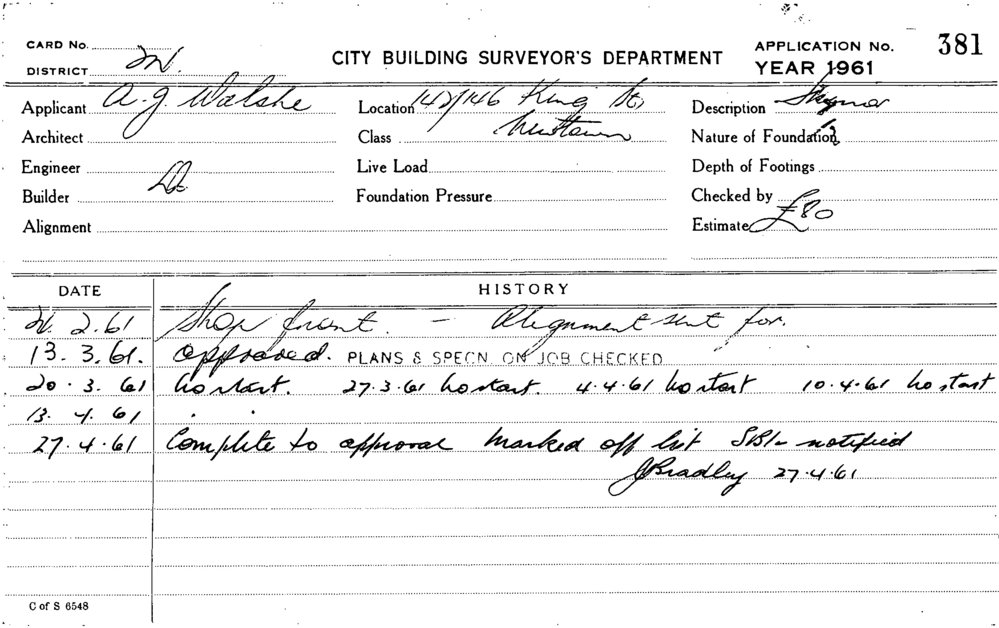 CARD No.
CITY BUILDING SURVEYOR'S DEPARTMENT
APPLICATION No. 381
DISTRICT N.
YEAR 1961
Applicant A. J. Walshe
Location 142/146 King St,
Description
Architect
Class Newtown
Nature of Foundation
Engineer
Live Load
Depth of Footings
Builder Do.
Foundation Pressure
Checked by
Alignment
Estimate £80
DATE HISTORY
2.61 Shop front. - Alignment sent for.
13.3.61. approved. PLANS & SPECN. ON JOB CHECKED
20.3.61 no start. 27.3.61 no start. 4.4.61 no start 10.4.61 no start
13.4.61 . .
27.4.61 Complete to approval marked off list notified
J Bradley 27.4.61
C of S 6548